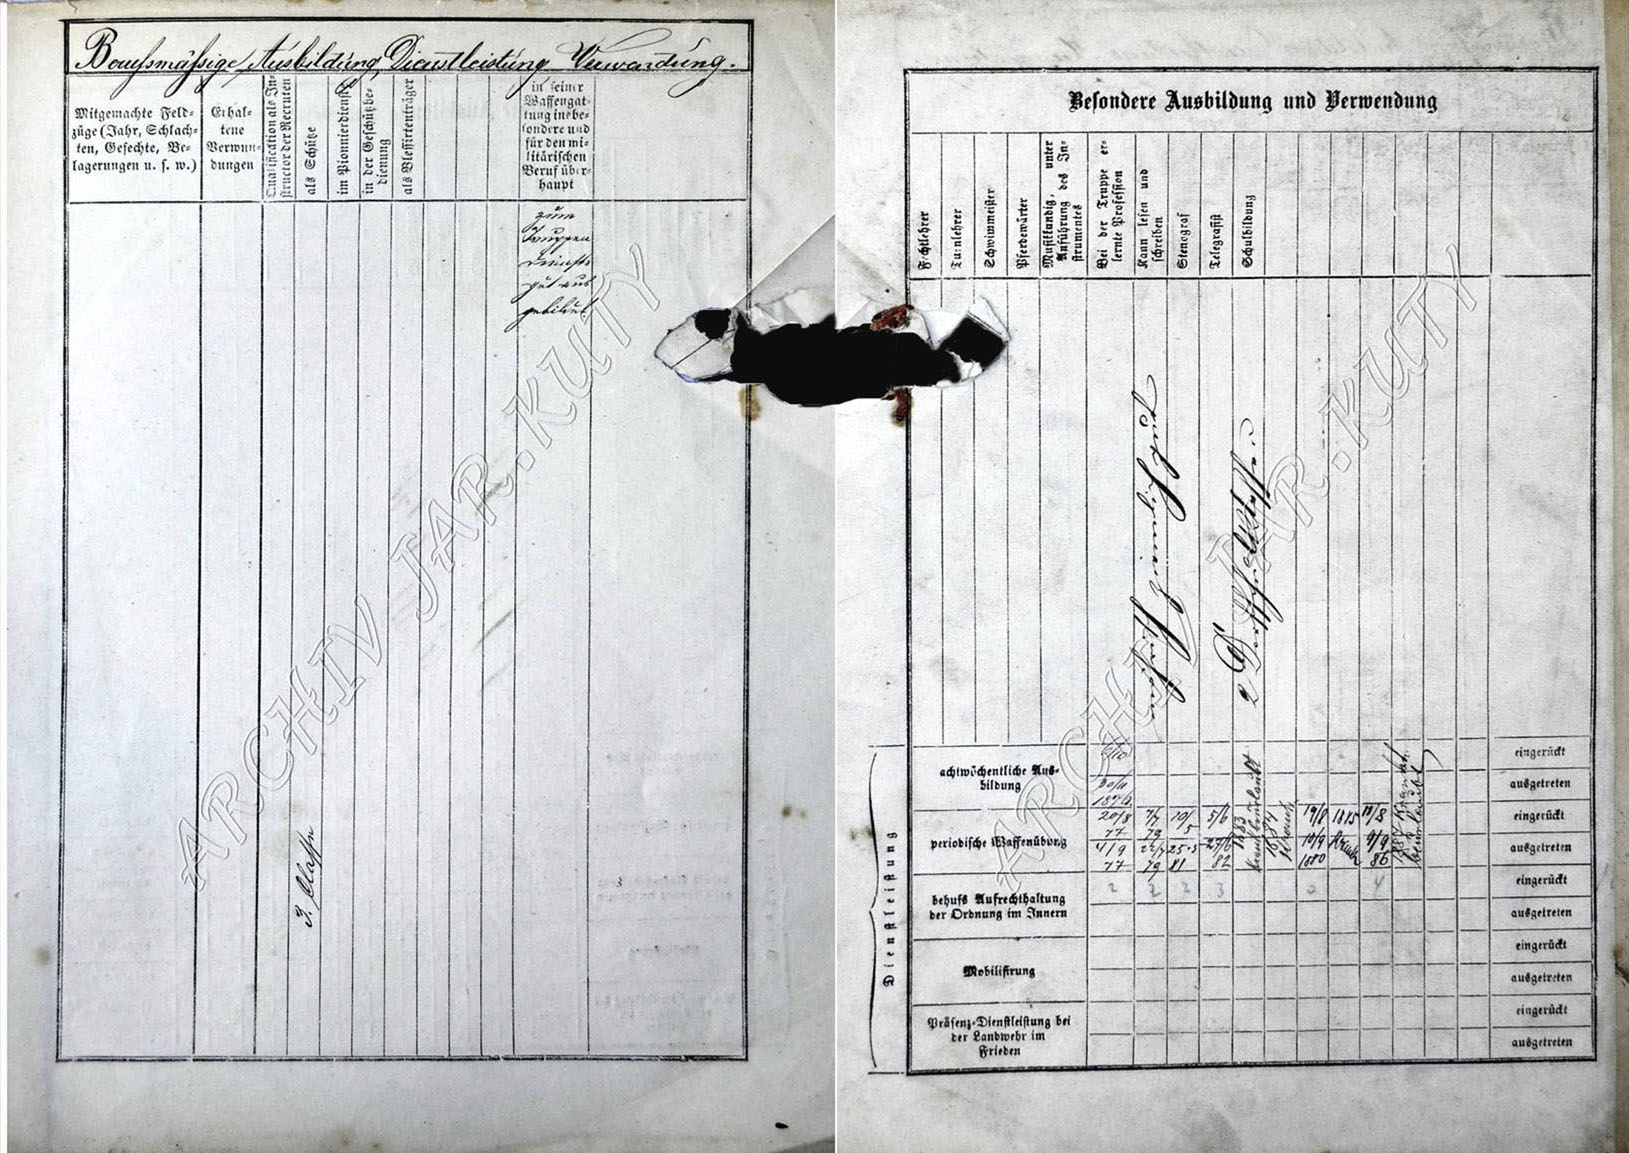 Berufsmässige Ausbildung, Dienstleistung Verwendung.
Mitgemachte Feld=
züge (Jahr, Schlach=
ten, Gefechte, Be=
lagerungen u. s. w.)
Erhal=
tene
Verwun=
dungen
Qualification als In=
structor der Recruten
als Schütze
im Pionnierdienst
in der Geschützbe=
dienung
als Blessirtenträger
in seiner
Waffengat=
tung insbe=
sondere und
für den mi=
litärischen
Beruf über=
haupt
zum
Truppen
Dienste
gut aus
gebildet
3. Classe
Besondere Ausbildung und Verwendung
Fechtlehrer
Turnlehrer
Schwimmeister
Pferdewärter
Musikkundig, unter
Anführung des In=
strumentes
Bei der Truppe er=
lernte Profession
Kann lesen und
schreiben
Stenograf
Telegrafist
Schulbildung
2 Dorfschulklassen
Dienstleistung
achtwöchentliche Aus=
bildung
eingerückt
20/11
1876
ausgetreten
periodische Waffenübung
20/8
77
7/7
79
10/
5
5/6
1883
1884
19/8
1885
11/8
1887 Krank
beurlaubt
eingerückt
4/9
77
22/7
79
25.5
81
25/6
82
10/9
1880
9/9
86
ausgetreten
behufs Aufrechthaltung
der Ordnung im Innern
2 2 2 3 2 4
eingerückt
ausgetreten
Mobilisirung
eingerückt
ausgetreten
Präsenz=Dienstleistung bei
der Landwehr im
Frieden
eingerückt
ausgetreten
ARCHIV JAR.KUTY
ARCHIV JAR.KUTY